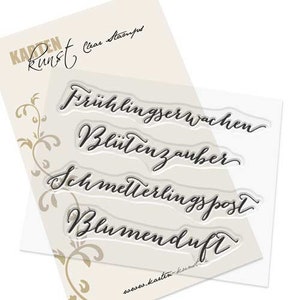 KARTEN
Kunst Clear Stamps
Frühlingserwachen
Blütenzauber
Schmetterlingspost
Blumenduft
www.karten-kunst